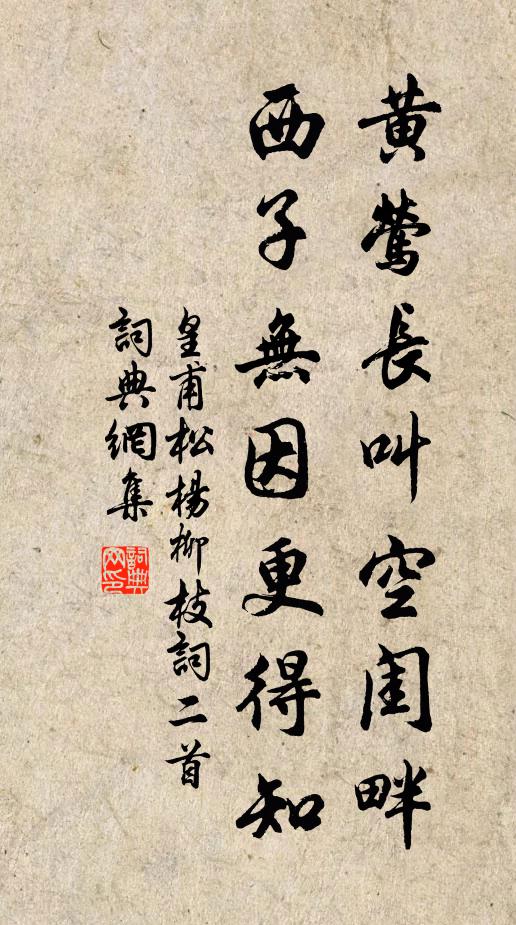 黄鶯長叫空閨畔
西子無因更得知
皇甫松楊柳枝詞二首
詞典網集
詞典网印